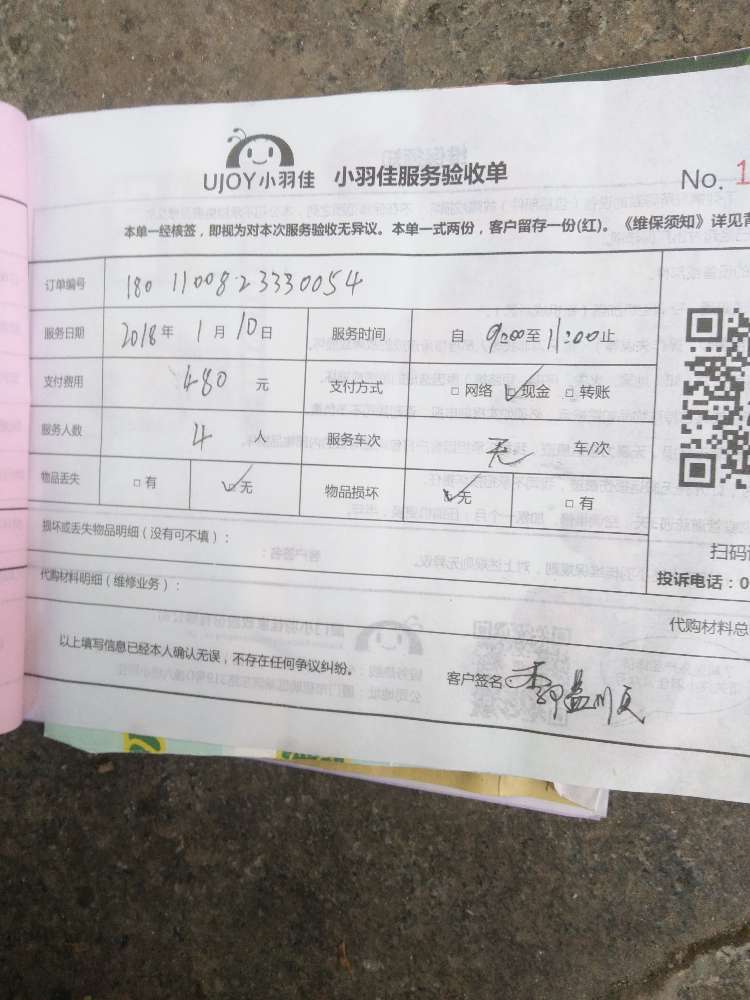 UJOY小羽佳 小羽佳服务验收单
No. 1
本单一经核签，即视为对本次服务验收无异议。本单一式两份，客户留存一份(红)。《维保须知》详见背
订单编号 180 1100823330054
服务日期 2018年 1月 10日 服务时间 自 9:00至 11:00止
支付费用 480 元 支付方式 □网络 ☑现金 □转账
服务人数 4 人 服务车次 无 车/次
物品丢失 □有 ☑无 物品损坏 ☑无 □有
损坏或丢失物品明细（没有可不填）：
扫码
代购材料明细（维修业务）：
投诉电话：0
代购材料总
以上填写信息已经本人确认无误，不存在任何争议纠纷。
客户签名：